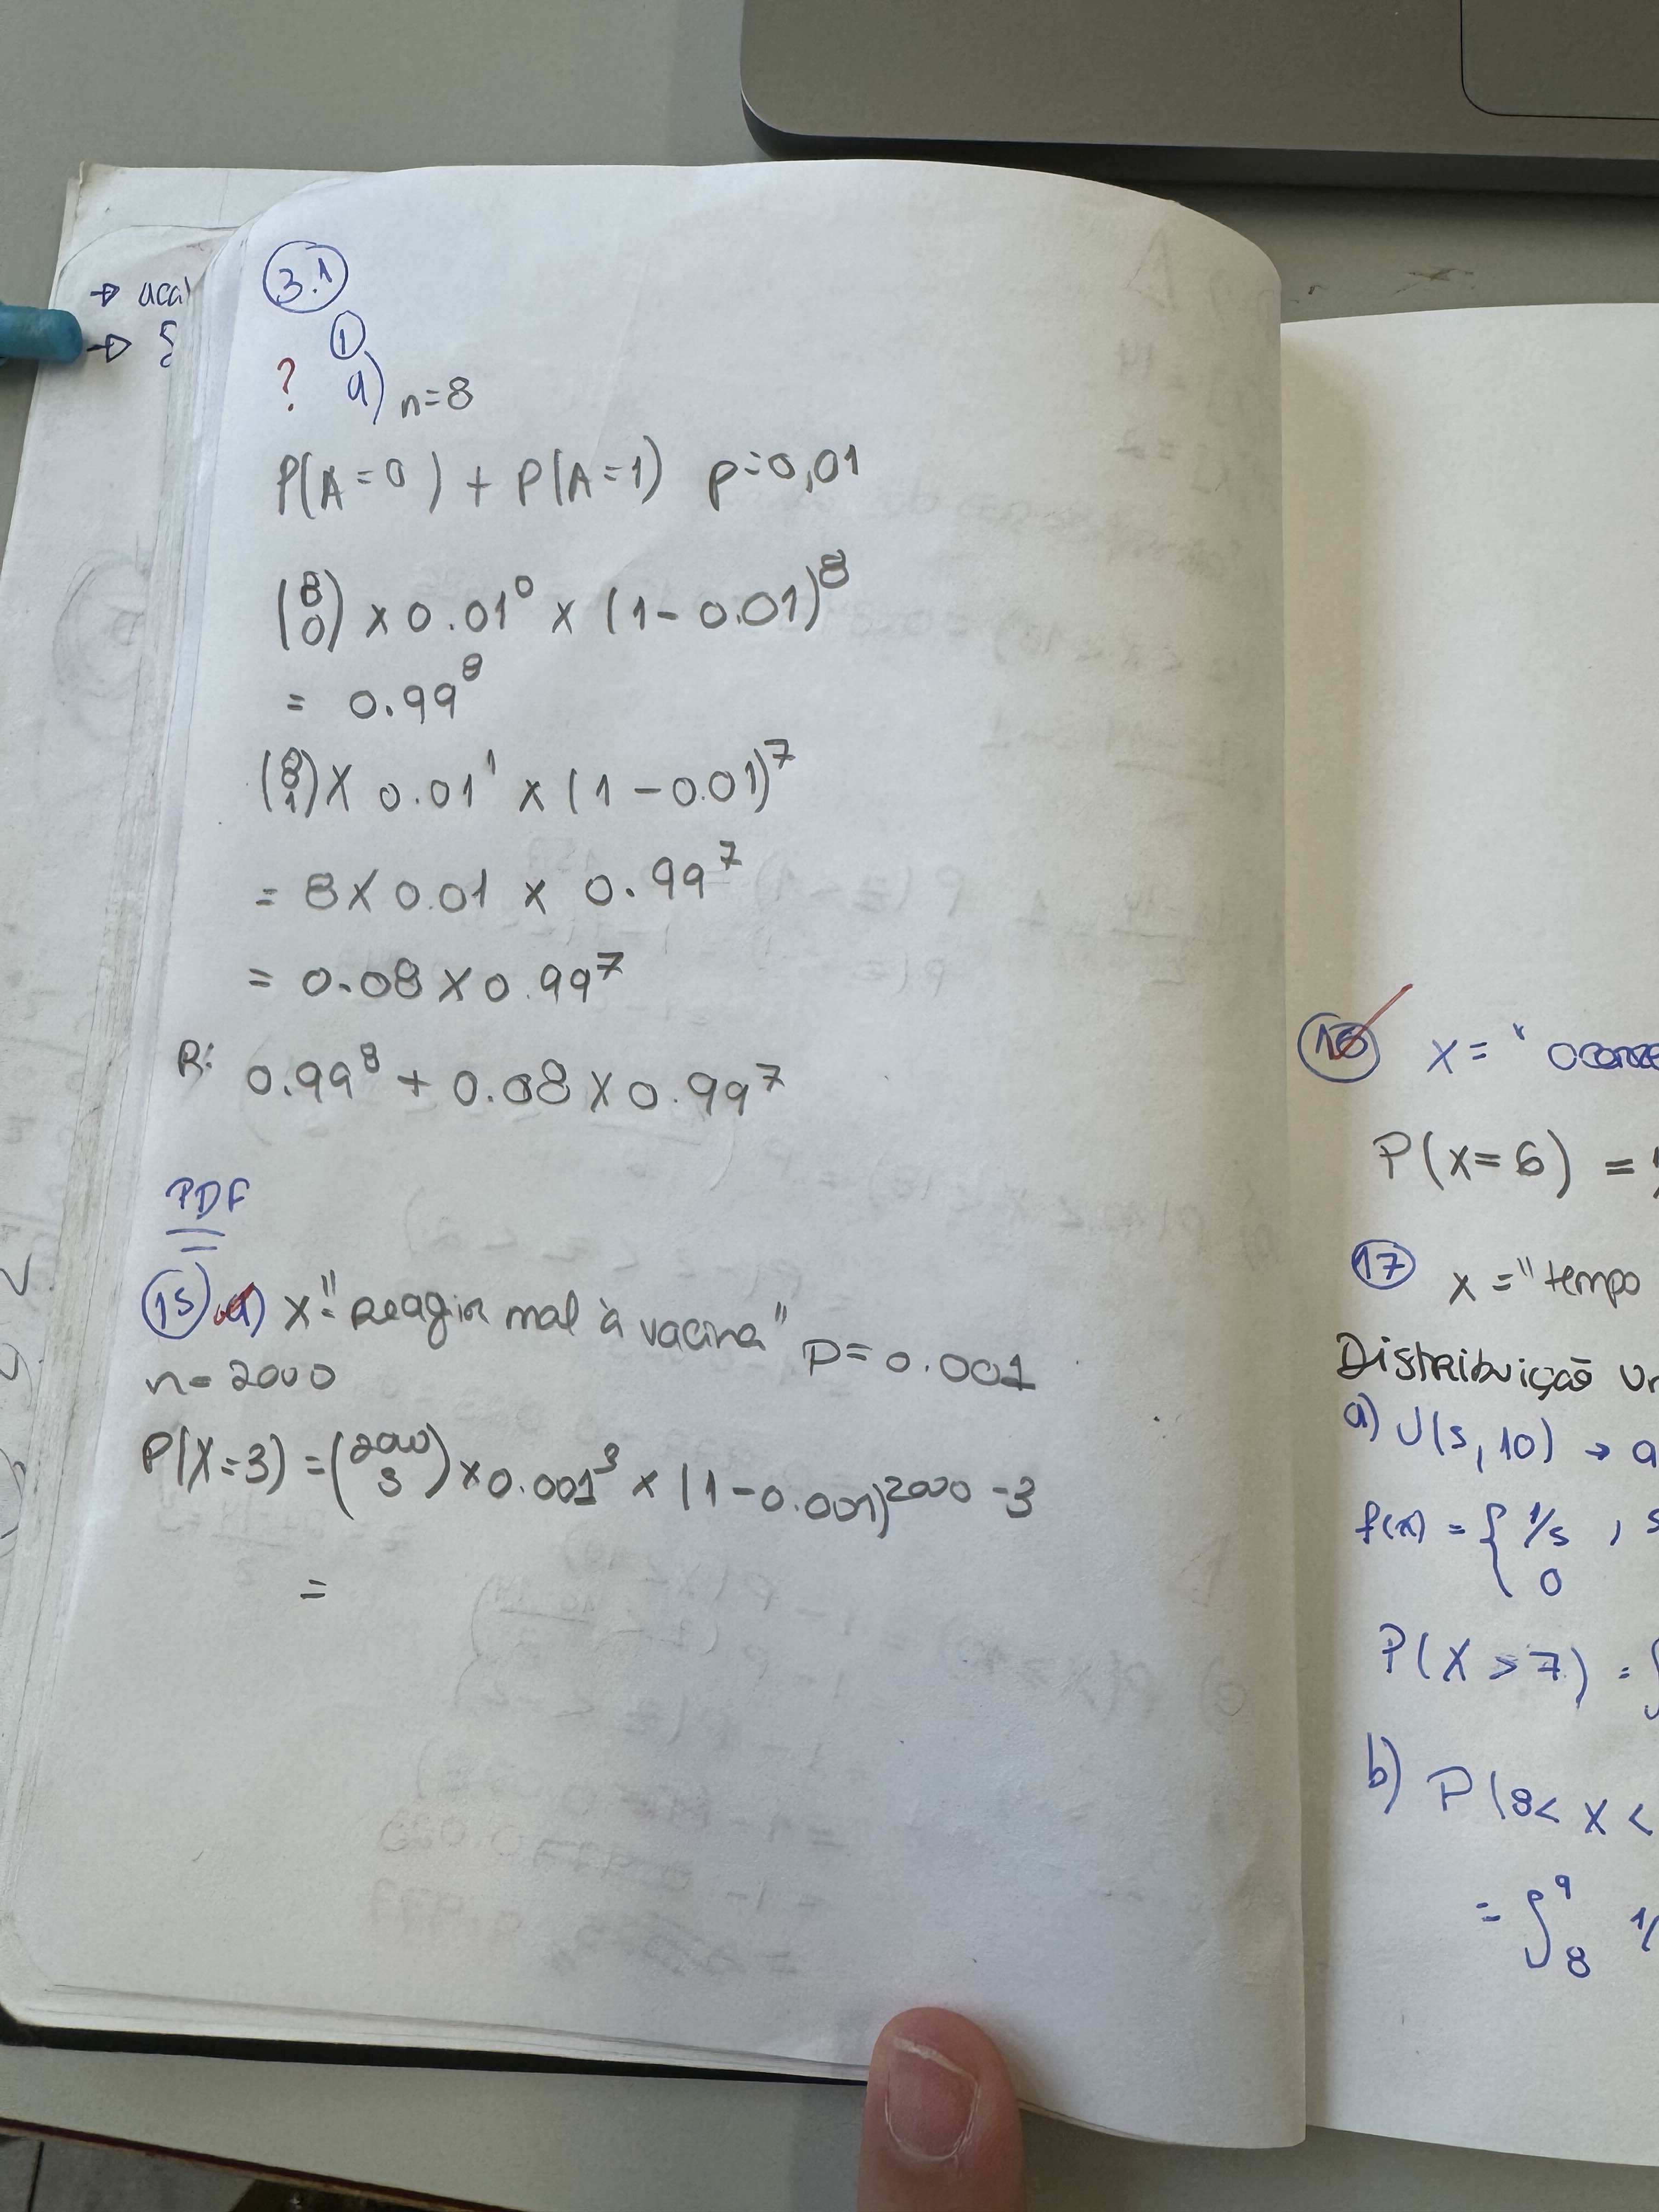 → aca
→ {
3.1
1
? a) n=8
P(A=0) + P(A=1) p=0,01
(8 0) × 0.01⁰ × (1-0.01)⁸
= 0.99⁸
(8 1) × 0.01¹ × (1-0.01)⁷
= 8 × 0.01 × 0.99⁷
= 0.08 × 0.99⁷
R: 0.99⁸ + 0.08 × 0.99⁷
PDF
15 a) X="Reagir mal à vacina" p=0.001
n=2000
P(X=3) = (2000 3) × 0.001³ × (1-0.001)²⁰⁰⁰⁻³
=
16 X= "
P(X=6) =
17 X="tempo
Distribuição
a) U(5,10) → a
f(x) = { 1/5 , 5
0
P(X>7) = ∫
b) P(8< X <
= ∫₈⁹ 1/